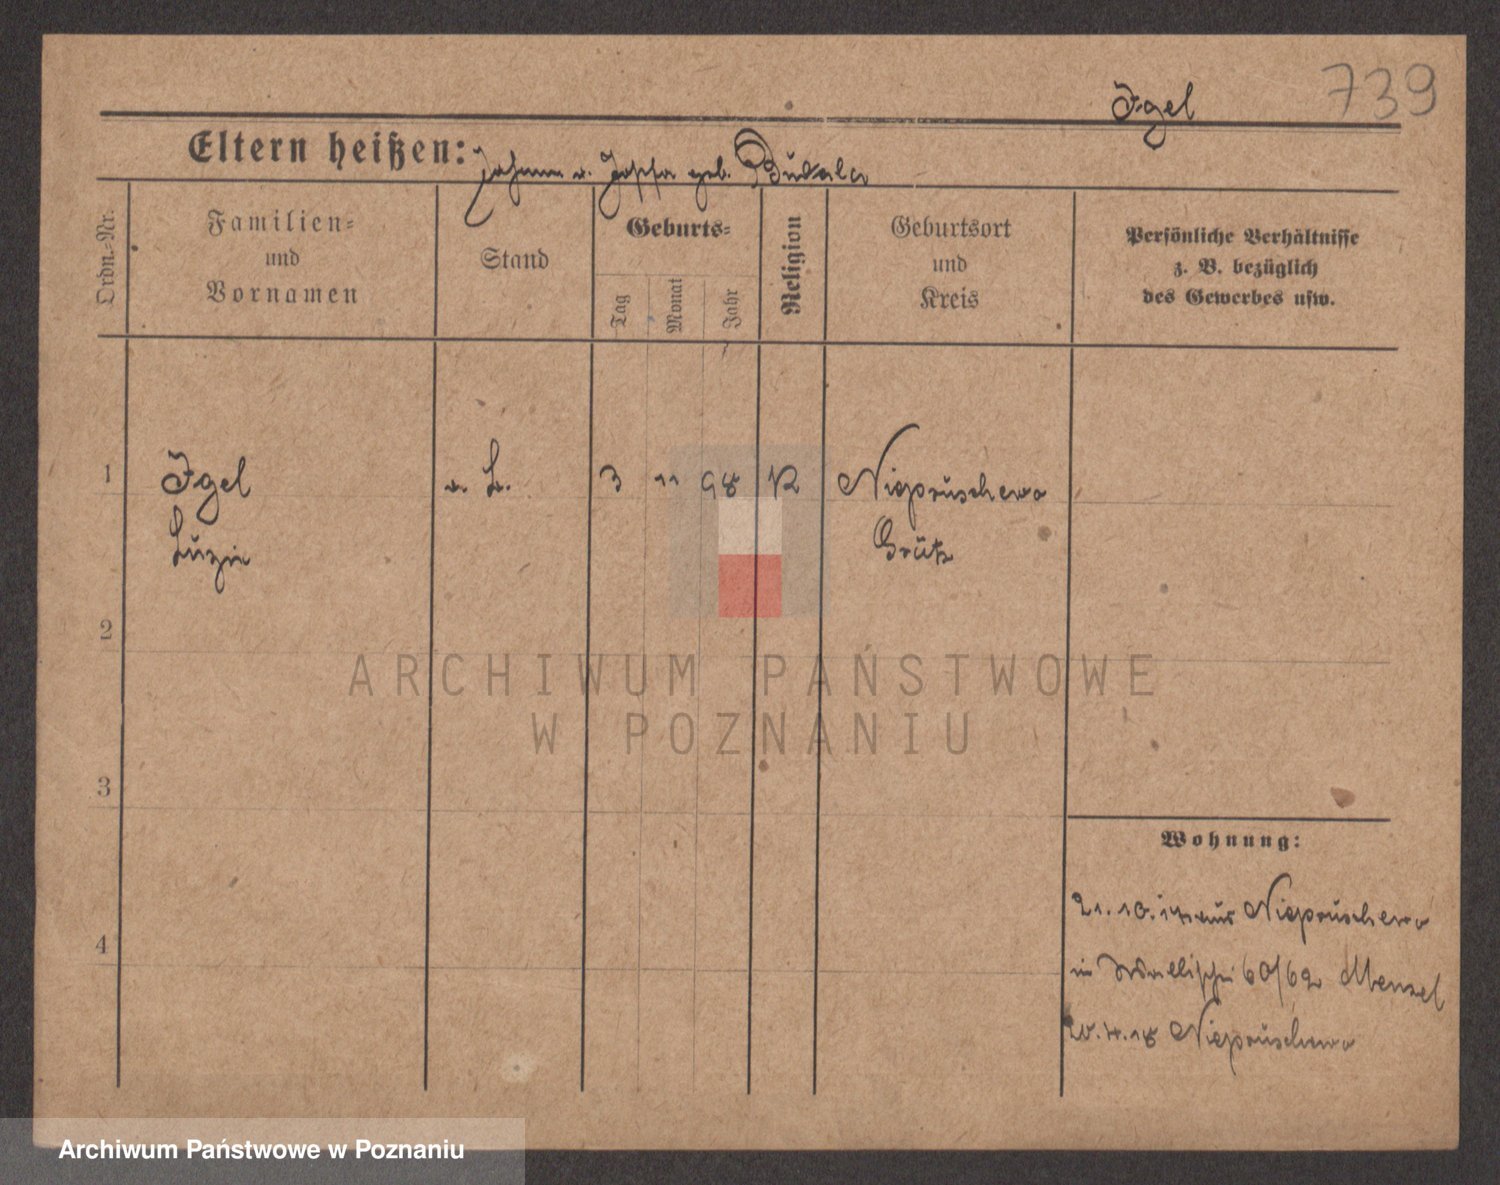 739
Igel
Eltern heißen: Johann u. Josefa geb. Budala
Ordn.-Nr.
Familien-
und
Vornamen
Stand
Geburts-
Tag
Monat
Jahr
Religion
Geburtsort
und
Kreis
Persönliche Verhältnisse
z. B. bezüglich
des Gewerbes usw.
1
Igel
Luzie
3 11 98 K
Niepruschewo
Grätz
2
ARCHIWUM PAŃSTWOWE
W POZNANIU
3
Wohnung:
4
21.10.17 aus Niepruschewo
in Wallischei 60/62 Menzel
20.4.18 Niepruschewo
Archiwum Państwowe w Poznaniu